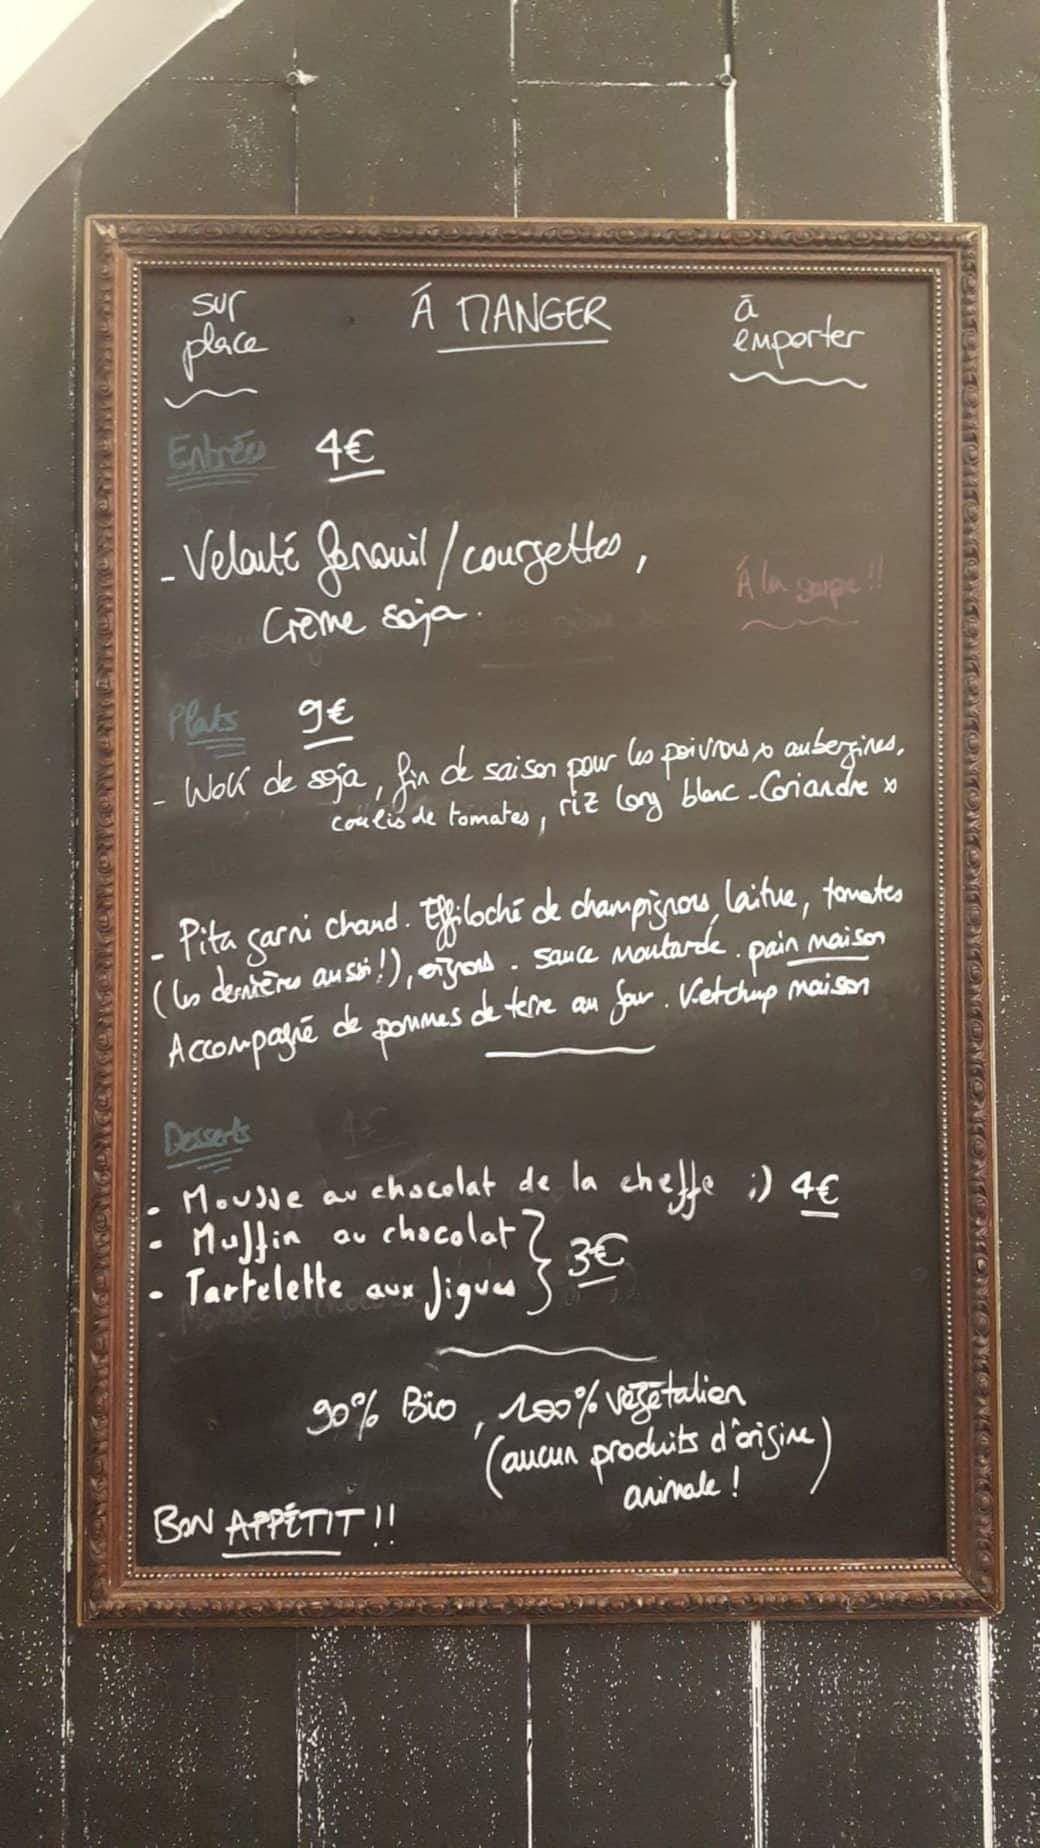 sur place
À MANGER
à emporter
Entrées 4€
- Velouté fenouil/courgettes,
Crème soja.
À la soupe!!
Plats 9€
- Wok de soja, fin de saison pour les poivrons & aubergines,
coulis de tomates, riz long blanc - Coriandre
- Pita garni chaud. Effiloché de champignons, laitue, tomates
(les dernières aussi!), oignons. sauce moutarde. pain maison
Accompagné de pommes de terre au four. Ketchup maison
Desserts 4€
- Mousse au chocolat de la cheffe ;) 4€
- Muffin au chocolat } 3€
- Tartelette aux figues
90% Bio, 100% végétalien
(aucun produits d'origine
animale!)
BON APPÉTIT!!